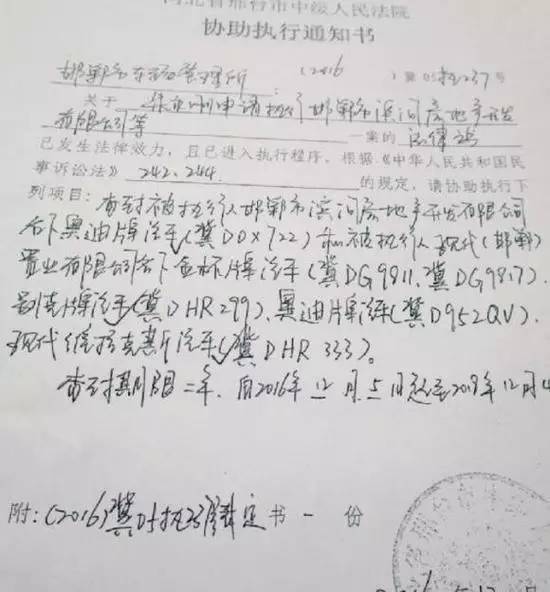 河北省邢台市中级人民法院
协助执行通知书
邯郸市车辆管理所 (2016) 第05执237号
关于 申请执行邯郸市滨河房地产开发
有限公司等 一案的 法律
已发生法律效力，且已进入执行程序。根据《中华人民共和国民
事诉讼法》242、244 的规定，请协助执行下
列项目：查封被执行人邯郸市滨河房地产开发有限公司
名下奥迪牌汽车(冀D0X722)和被执行人现代(邯郸)
置业有限公司名下金杯牌汽车(冀DG9811、冀DG9817)、
别克牌汽车(冀DHR299)、奥迪牌汽车(冀D952QV)、
现代维拉克斯汽车(冀DHR333)。
查封期限二年。自2016年12月5日起至2019年12月4
附：(2016)冀05执 裁定书一份